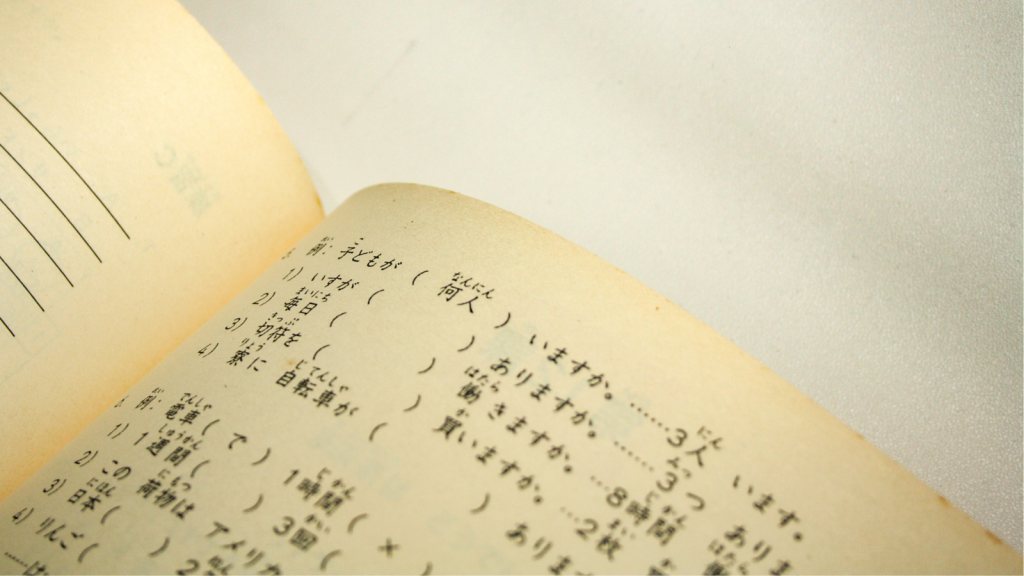 例: 子どもが ( 何人 ) いますか。……3人 います。
1) いすが ( ) ありますか。……3つ あり
2) 毎日 ( ) 働きますか。…8時間
3) 切符を ( ) 買いますか。…2枚
4) 寮に 自転車が ( ) あります
例: 電車( で ) 1時間( × )
1) 1週間( ) 3回(
2) この 荷物は アメリカ
3) 日本( ) 2
4) りんご(